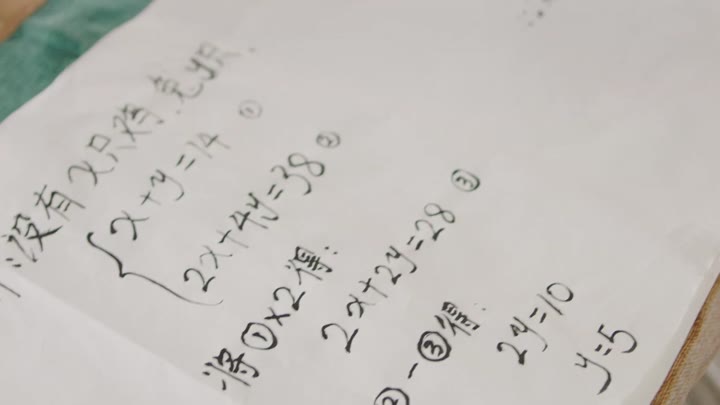 没有x只鸡,兔y只.
x+y=14 ①
2x+4y=38 ②
将①×2得:
2x+2y=28 ③
②-③得:
2y=10
y=5